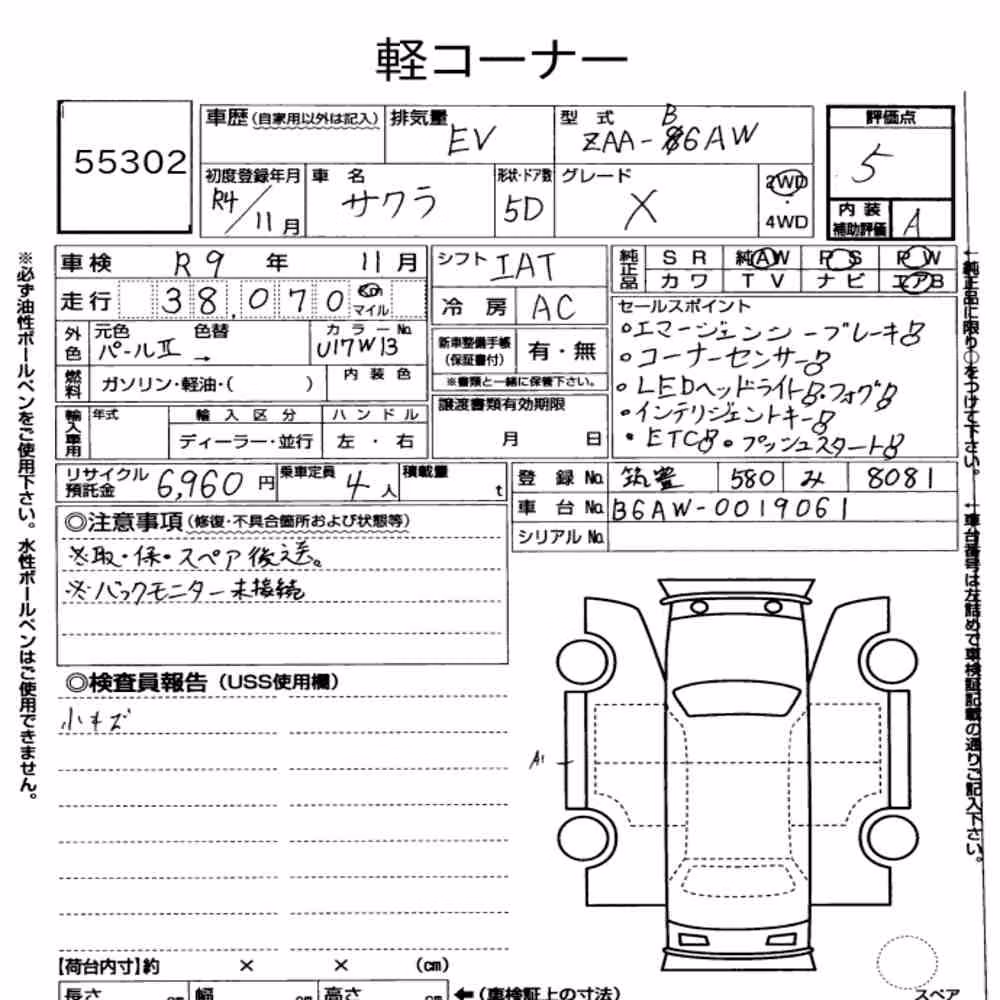 軽コーナー
55302
車歴 (自家用以外は記入) 排気量 EV 型式 ZAA-B6AW 評価点 5
初度登録年月 R4/11月 車名 サクラ 形状・ドア数 5D グレード X 2WD・4WD 内装補助評価 A
車検 R9年 11月 シフト IAT 純正品 SR 純AW PS PW
カワ TV ナビ エアB
走行 38,070 Km マイル 冷房 AC セールスポイント
外色 元色 パールⅡ 色替 → カラーNo. U17W13 新車整備手帳(保証書付) 有・無
※書類と一緒に保管下さい。
・エマージェンシーブレーキ
・コーナーセンサー
・LEDヘッドライト・フォグ
・インテリジェントキー
・ETC・プッシュスタート
燃料 ガソリン・軽油・( ) 内装色
譲渡書類有効期限 月 日
輸入車用 年式 輸入区分 ディーラー・並行 ハンドル 左・右
リサイクル預託金 6,960円 乗車定員 4人 積載量 t
登録No. 筑豊 580 み 8081
車台No. B6AW-0019061
シリアルNo.
◎注意事項 (修復・不具合箇所および状態等)
※取・保・スペア後送。
※バックモニター未接続
◎検査員報告 (USS使用欄)
小キズ
A1
【荷台内寸】約 × × (cm)
長さ cm 幅 cm 高さ cm ←(車検証上の寸法)
スペア
※必ず油性ボールペンをご使用下さい。水性ボールペンはご使用できません。
←純正品に限り○をつけて下さい。
←車台番号は左詰めで車検証記載の通りご記入下さい。